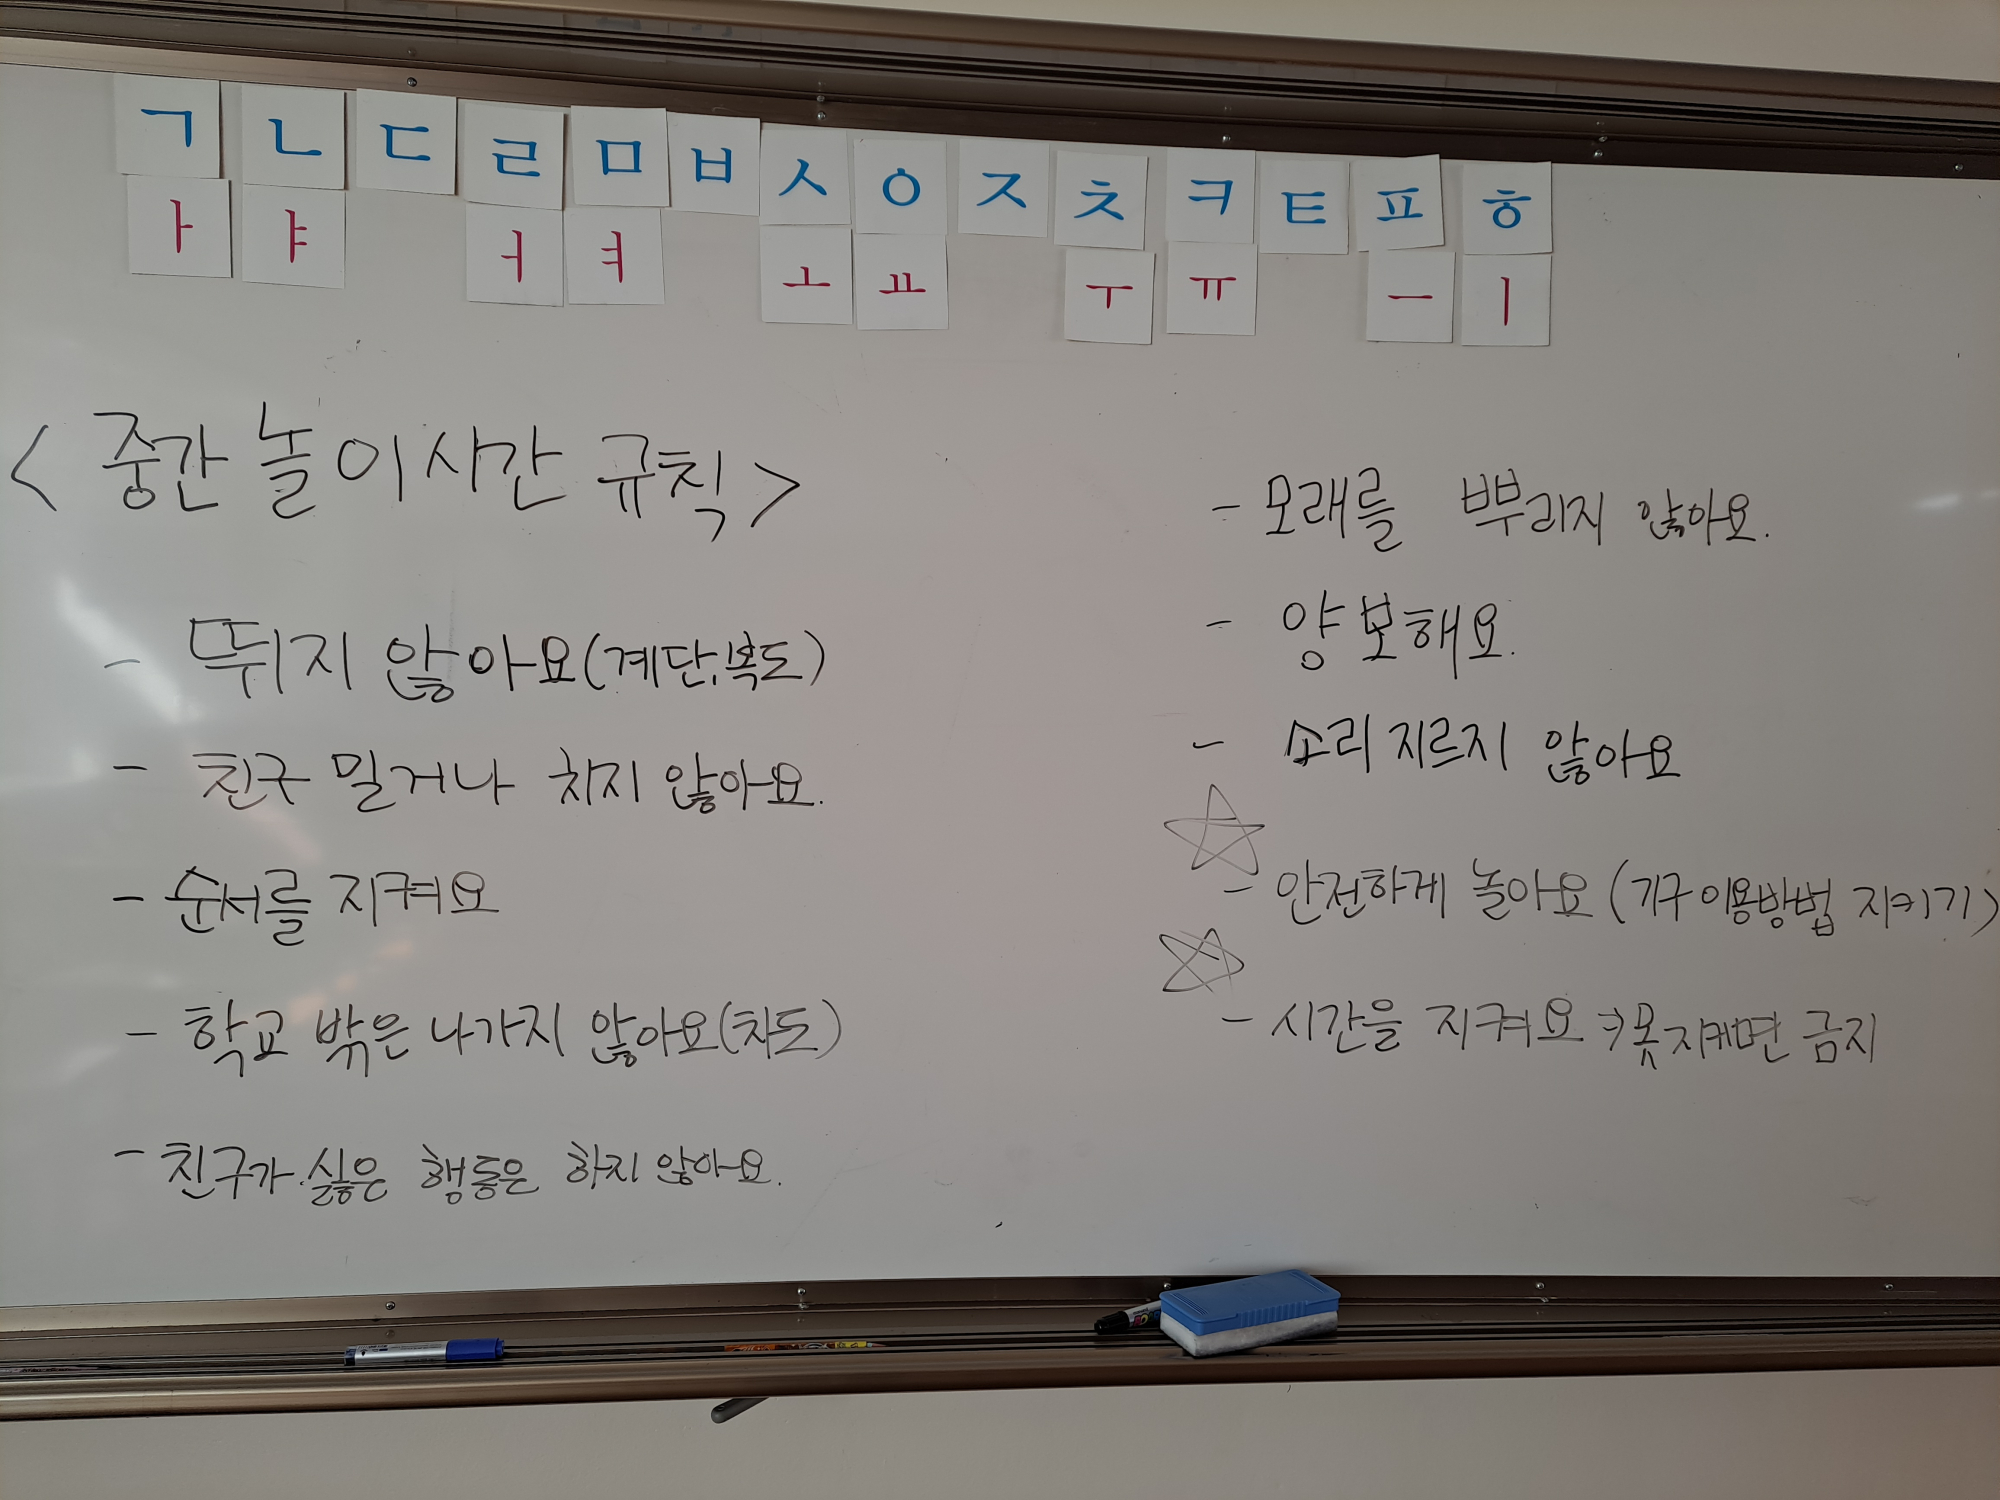 ㄱ ㄴ ㄷ ㄹ ㅁ ㅂ ㅅ ㅇ ㅈ ㅊ ㅋ ㅌ ㅍ ㅎ
ㅏ ㅑ ㅓ ㅕ ㅗ ㅛ ㅜ ㅠ ㅡ ㅣ
<중간 놀이시간 규칙>
- 뛰지 않아요(계단,복도)
- 친구 밀거나 치지 않아요.
- 순서를 지켜요
- 학교 밖은 나가지 않아요(차도)
- 친구가 싫은 행동은 하지 않아요.
- 모래를 뿌리지 않아요.
- 양보해요.
- 소리 지르지 않아요
☆ - 안전하게 놀아요 (기구 이용방법 지키기)
☆ - 시간을 지켜요 → 못 지키면 금지